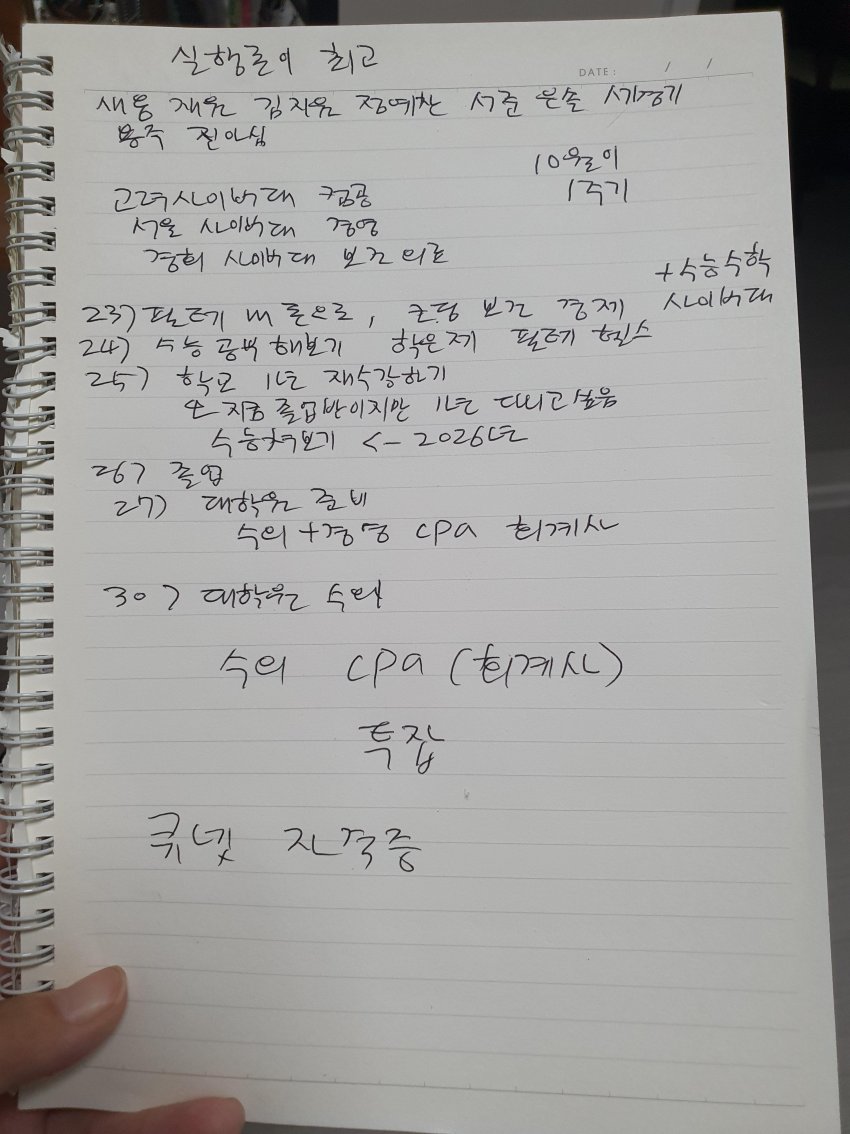 실행론이 최고
DATE: / /
새웅 재원 김지원 정예찬 서준 은솔
용주 진아심
10월이
1주기
고려사이버대 컴공
서울 사이버대 경영
경희 사이버대 보건의료
+수능수학
사이버대
23) 필테 내 돈으로, 코딩 보건 경제
24) 수능 공부 해보기 학은제 필테 헬스
25) 학교 1년 재수강하기
지금 졸업반이지만 1년 다니고싶음
수능쳐보기 <- 2026년
26) 졸업
27) 대학원 준비
수의+경영 CPA 회계사
30) 대학원 수의
수의 CPA (회계사)
특잡
큐넷 자격증